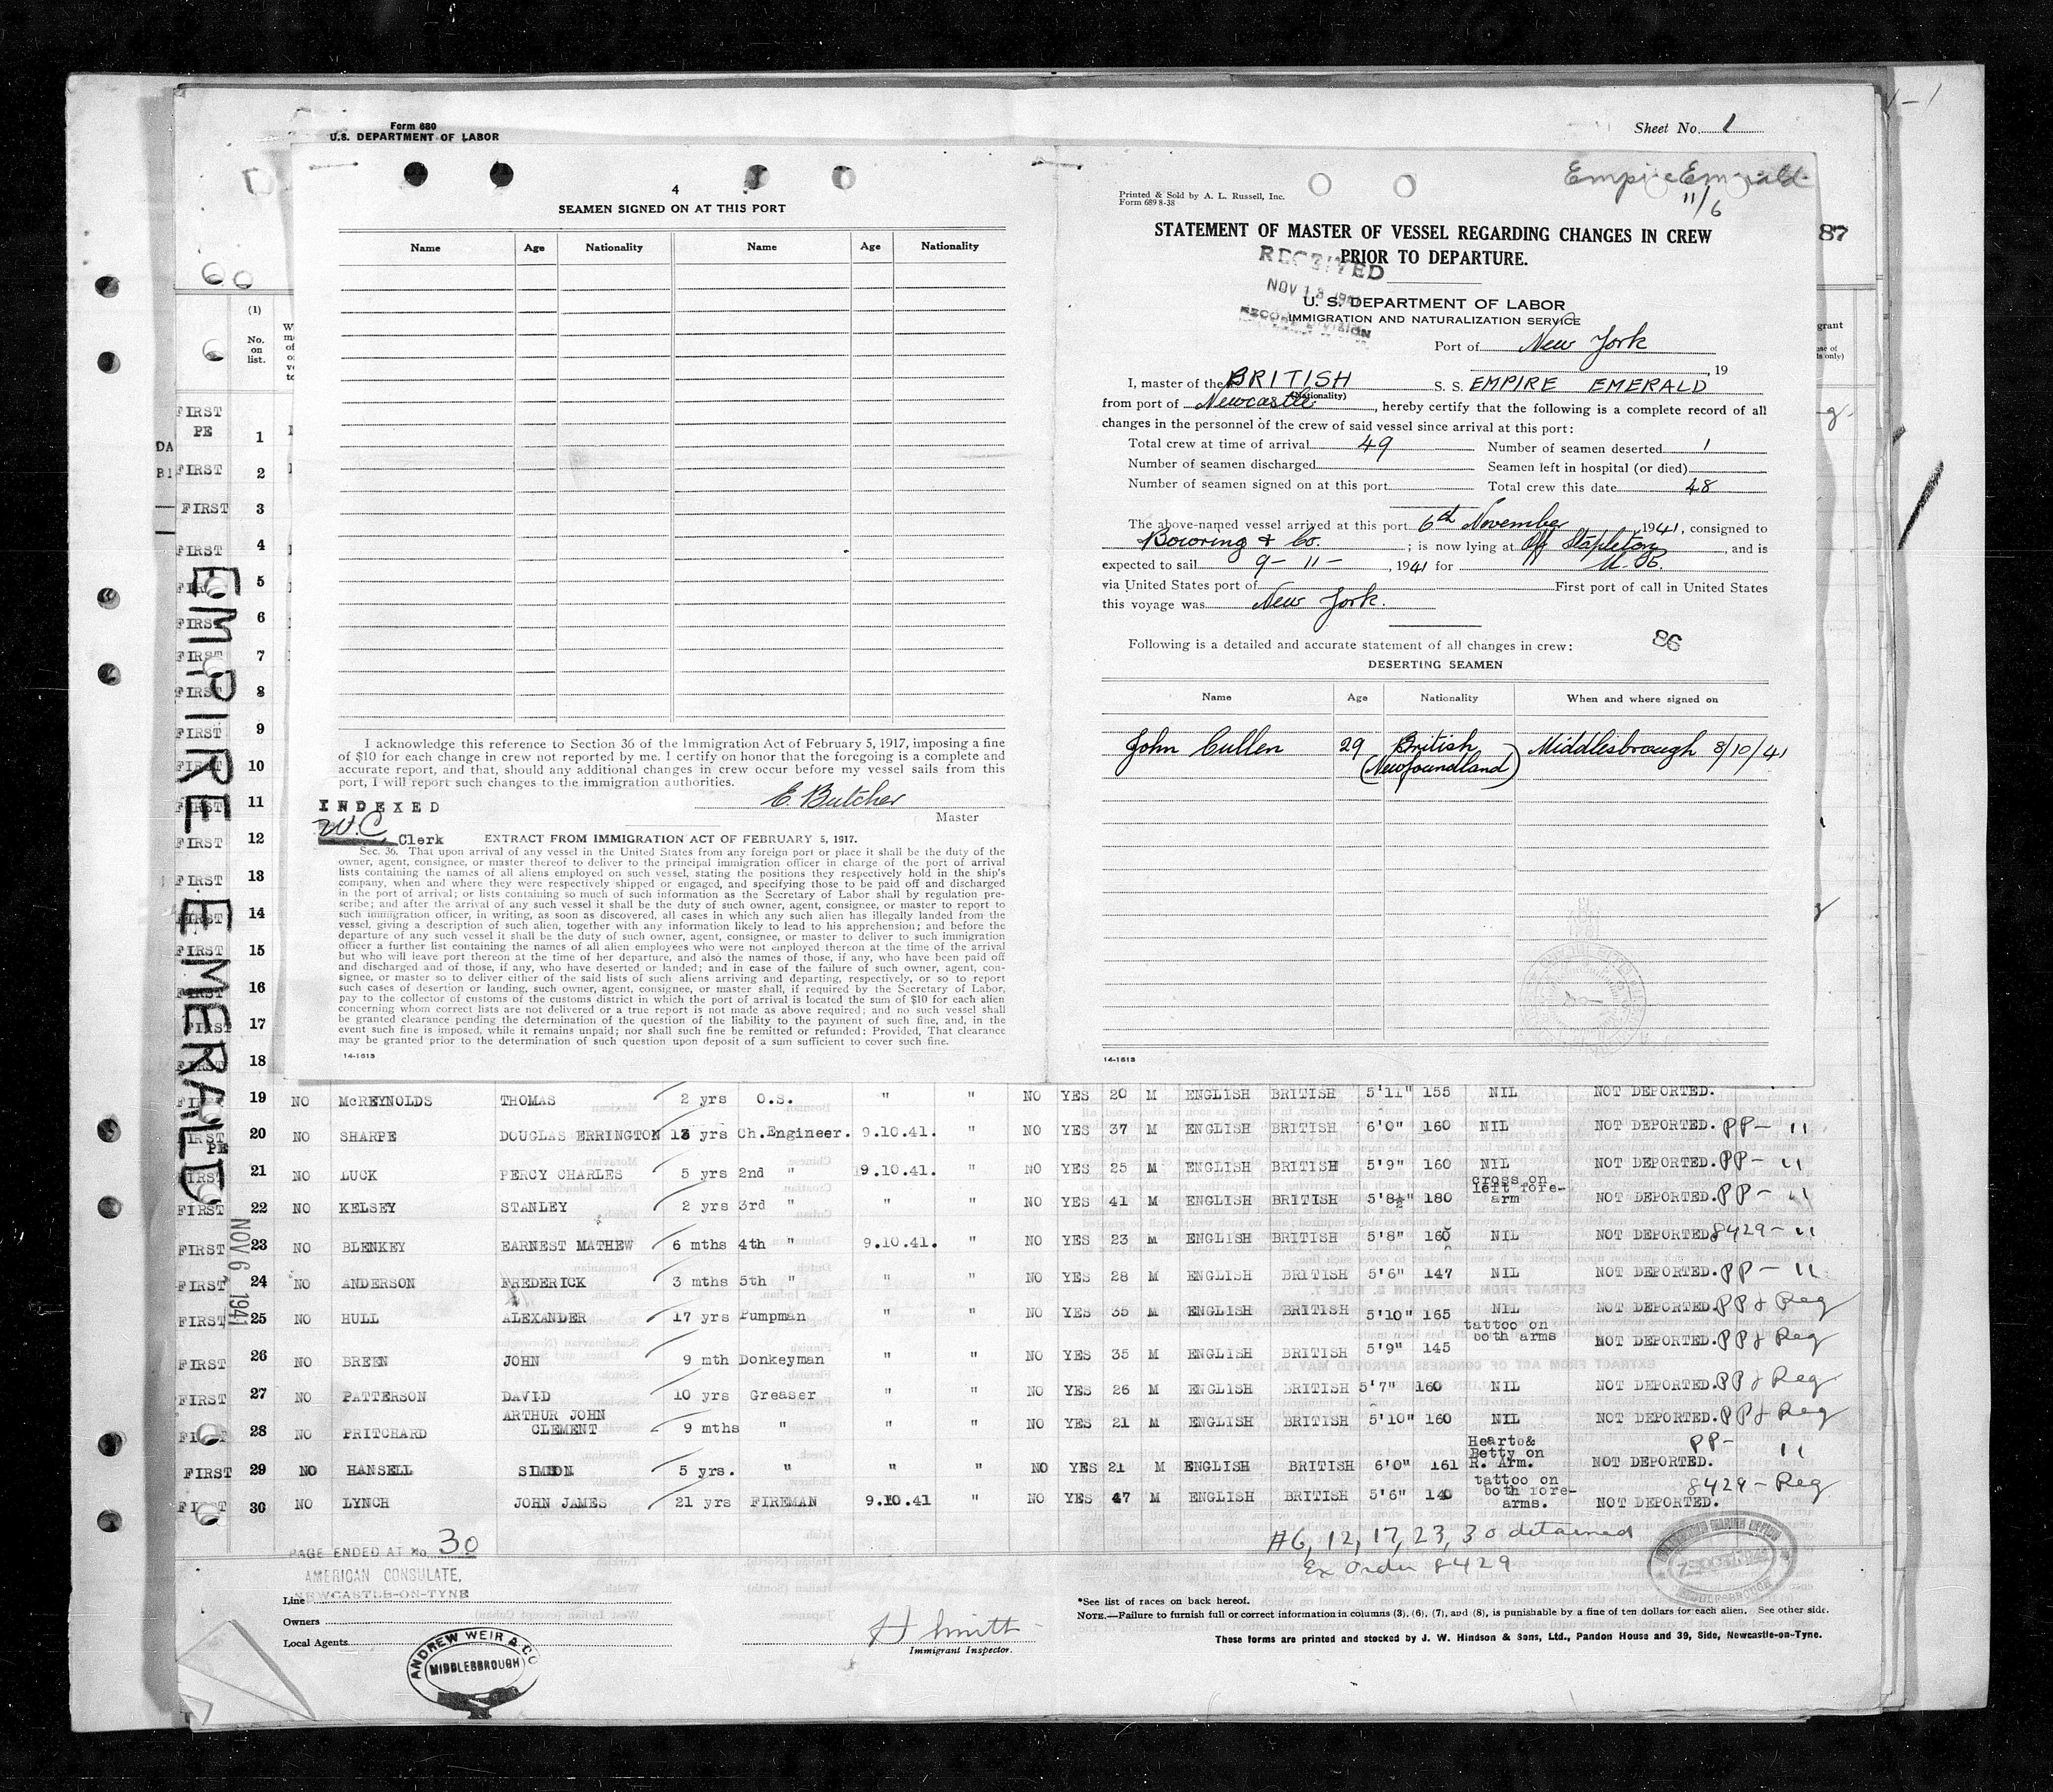 Form 680
U.S. DEPARTMENT OF LABOR
Sheet No. 1
4
SEAMEN SIGNED ON AT THIS PORT
Name Age Nationality Name Age Nationality
I acknowledge this reference to Section 36 of the Immigration Act of February 5, 1917, imposing a fine
of $10 for each change in crew not reported by me. I certify on honor that the foregoing is a complete and
accurate report, and that, should any additional changes in crew occur before my vessel sails from this
port, I will report such changes to the immigration authorities.
E. Butcher
Master
INDEXED
W.C. Clerk
EXTRACT FROM IMMIGRATION ACT OF FEBRUARY 5, 1917.
Sec. 36. That upon arrival of any vessel in the United States from any foreign port or place it shall be the duty of the
owner, agent, consignee, or master thereof to deliver to the principal immigration officer in charge of the port of arrival
lists containing the names of all aliens employed on such vessel, stating the positions they respectively hold in the ship's
company, when and where they were respectively shipped or engaged, and specifying those to be paid off and discharged
in the port of arrival; or lists containing so much of such information as the Secretary of Labor shall by regulation pre-
scribe; and after the arrival of any such vessel it shall be the duty of such owner, agent, consignee, or master to report to
such immigration officer, in writing, as soon as discovered, all cases in which any such alien has illegally landed from the
vessel, giving a description of such alien, together with any information likely to lead to his apprehension; and before the
departure of any such vessel it shall be the duty of such owner, agent, consignee, or master to deliver to such immigration
officer a further list containing the names of all alien employees who were not employed thereon at the time of the arrival
but who will leave port thereon at the time of her departure, and also the names of those, if any, who have been paid off
and discharged and of those, if any, who have deserted or landed; and in case of the failure of such owner, agent, con-
signee, or master so to deliver either of the said lists of such aliens arriving and departing, respectively, or so to report
such cases of desertion or landing, such owner, agent, consignee, or master shall, if required by the Secretary of Labor,
pay to the collector of customs of the customs district in which the port of arrival is located the sum of $10 for each alien
concerning whom correct lists are not delivered or a true report is not made as above required; and no such vessel shall
be granted clearance pending the determination of the question of the liability to the payment of such fine, and, in the
event such fine is imposed, while it remains unpaid; nor shall such fine be remitted or refunded: Provided, That clearance
may be granted prior to the determination of such question upon deposit of a sum sufficient to cover such fine.
14-1613
Empire Emerald
11/6
Printed & Sold by A. L. Russell, Inc.
Form 689 8-38
STATEMENT OF MASTER OF VESSEL REGARDING CHANGES IN CREW
PRIOR TO DEPARTURE.
RECEIVED
NOV 13 1941
RECORD DIVISION
U. S. DEPARTMENT OF LABOR
IMMIGRATION AND NATURALIZATION SERVICE
Port of New York
, 19
I, master of the BRITISH S. S. EMPIRE EMERALD
(Nationality)
from port of Newcastle, hereby certify that the following is a complete record of all
changes in the personnel of the crew of said vessel since arrival at this port:
Total crew at time of arrival 49 Number of seamen deserted 1
Number of seamen discharged Seamen left in hospital (or died)
Number of seamen signed on at this port Total crew this date 48
The above-named vessel arrived at this port 6th November 1941, consigned to
Bowring & Co. ; is now lying at Off Stapleton, and is
expected to sail 9 - 11 - , 1941 for U. K.
via United States port of First port of call in United States
this voyage was New York.
Following is a detailed and accurate statement of all changes in crew: 86
DESERTING SEAMEN
Name Age Nationality When and where signed on
John Cullen 29 British (Newfoundland) Middlesbrough 8/10/41
14-1613
87
EMPIRE EMERALD
NOV 6 1941
(1)
No.
on
list.
FIRST PE 1
FIRST 2
FIRST 3
FIRST 4
FIRST 5
FIRST 6
FIRST 7
FIRST 8
FIRST 9
FIRST 10
FIRST 11
FIRST 12
FIRST 13
FIRST 14
FIRST 15
FIRST 16
FIRST 17
FIRST 18
FIRST 19 NO McREYNOLDS THOMAS 2 yrs O.S. " " NO YES 20 M ENGLISH BRITISH 5'11" 155 NIL NOT DEPORTED.
FIRST PE 20 NO SHARPE DOUGLAS ERRINGTON 13 yrs Ch.Engineer. 9.10.41. " NO YES 37 M ENGLISH BRITISH 6'0" 160 NIL NOT DEPORTED. PP - "
FIRST 21 NO LUCK PERCY CHARLES 5 yrs 2nd " 9.10.41. " NO YES 25 M ENGLISH BRITISH 5'9" 160 NIL NOT DEPORTED. PP - "
FIRST 22 NO KELSEY STANLEY 2 yrs 3rd " NO YES 41 M ENGLISH BRITISH 5'8½" 180 cross on left fore-arm NOT DEPORTED. PP - "
FIRST 23 NO BLENKEY EARNEST MATHEW 6 mths 4th " 9.10.41. " NO YES 23 M ENGLISH BRITISH 5'8" 160 NIL NOT DEPORTED 8429 - "
FIRST 24 NO ANDERSON FREDERICK 3 mths 5th " " " NO YES 28 M ENGLISH BRITISH 5'6" 147 NIL NOT DEPORTED. PP - "
FIRST 25 NO HULL ALEXANDER 17 yrs Pumpman " " NO YES 35 M ENGLISH BRITISH 5'10" 165 NIL NOT DEPORTED. PP & Reg
FIRST 26 NO BREEN JOHN 9 mth Donkeyman " " NO YES 35 M ENGLISH BRITISH 5'9" 145 tattoo on both arms NOT DEPORTED. PP & Reg
FIRST 27 NO PATTERSON DAVID 10 yrs Greaser " " NO YES 26 M ENGLISH BRITISH 5'7" 160 NIL NOT DEPORTED. PP & Reg
FIRST 28 NO PRITCHARD ARTHUR JOHN CLEMENT 9 mths " " " NO YES 21 M ENGLISH BRITISH 5'10" 160 NIL NOT DEPORTED. PP & Reg
FIRST 29 NO HANSELL SIMON 5 yrs. " " " NO YES 21 M ENGLISH BRITISH 6'0" 161 Heart & Betty on R. Arm. NOT DEPORTED. PP - "
FIRST 30 NO LYNCH JOHN JAMES 21 yrs FIREMAN 9.10.41 " NO YES 47 M ENGLISH BRITISH 5'6" 140 tattoo on both fore-arms. NOT DEPORTED. 8429 - Reg
#6, 12, 17, 23, 30 detained
Ex Order 8429
PAGE ENDED AT No 30
AMERICAN CONSULATE,
NEWCASTLE-ON-TYNE
Line
Owners
Local Agents
ANDREW WEIR & CO
MIDDLESBROUGH
H Smith
Immigrant Inspector.
*See list of races on back hereof.
NOTE.—Failure to furnish full or correct information in columns (3), (6), (7), and (8), is punishable by a fine of ten dollars for each alien. See other side.
These forms are printed and stocked by J. W. Hindson & Sons, Ltd., Pandon House and 39, Side, Newcastle-on-Tyne.